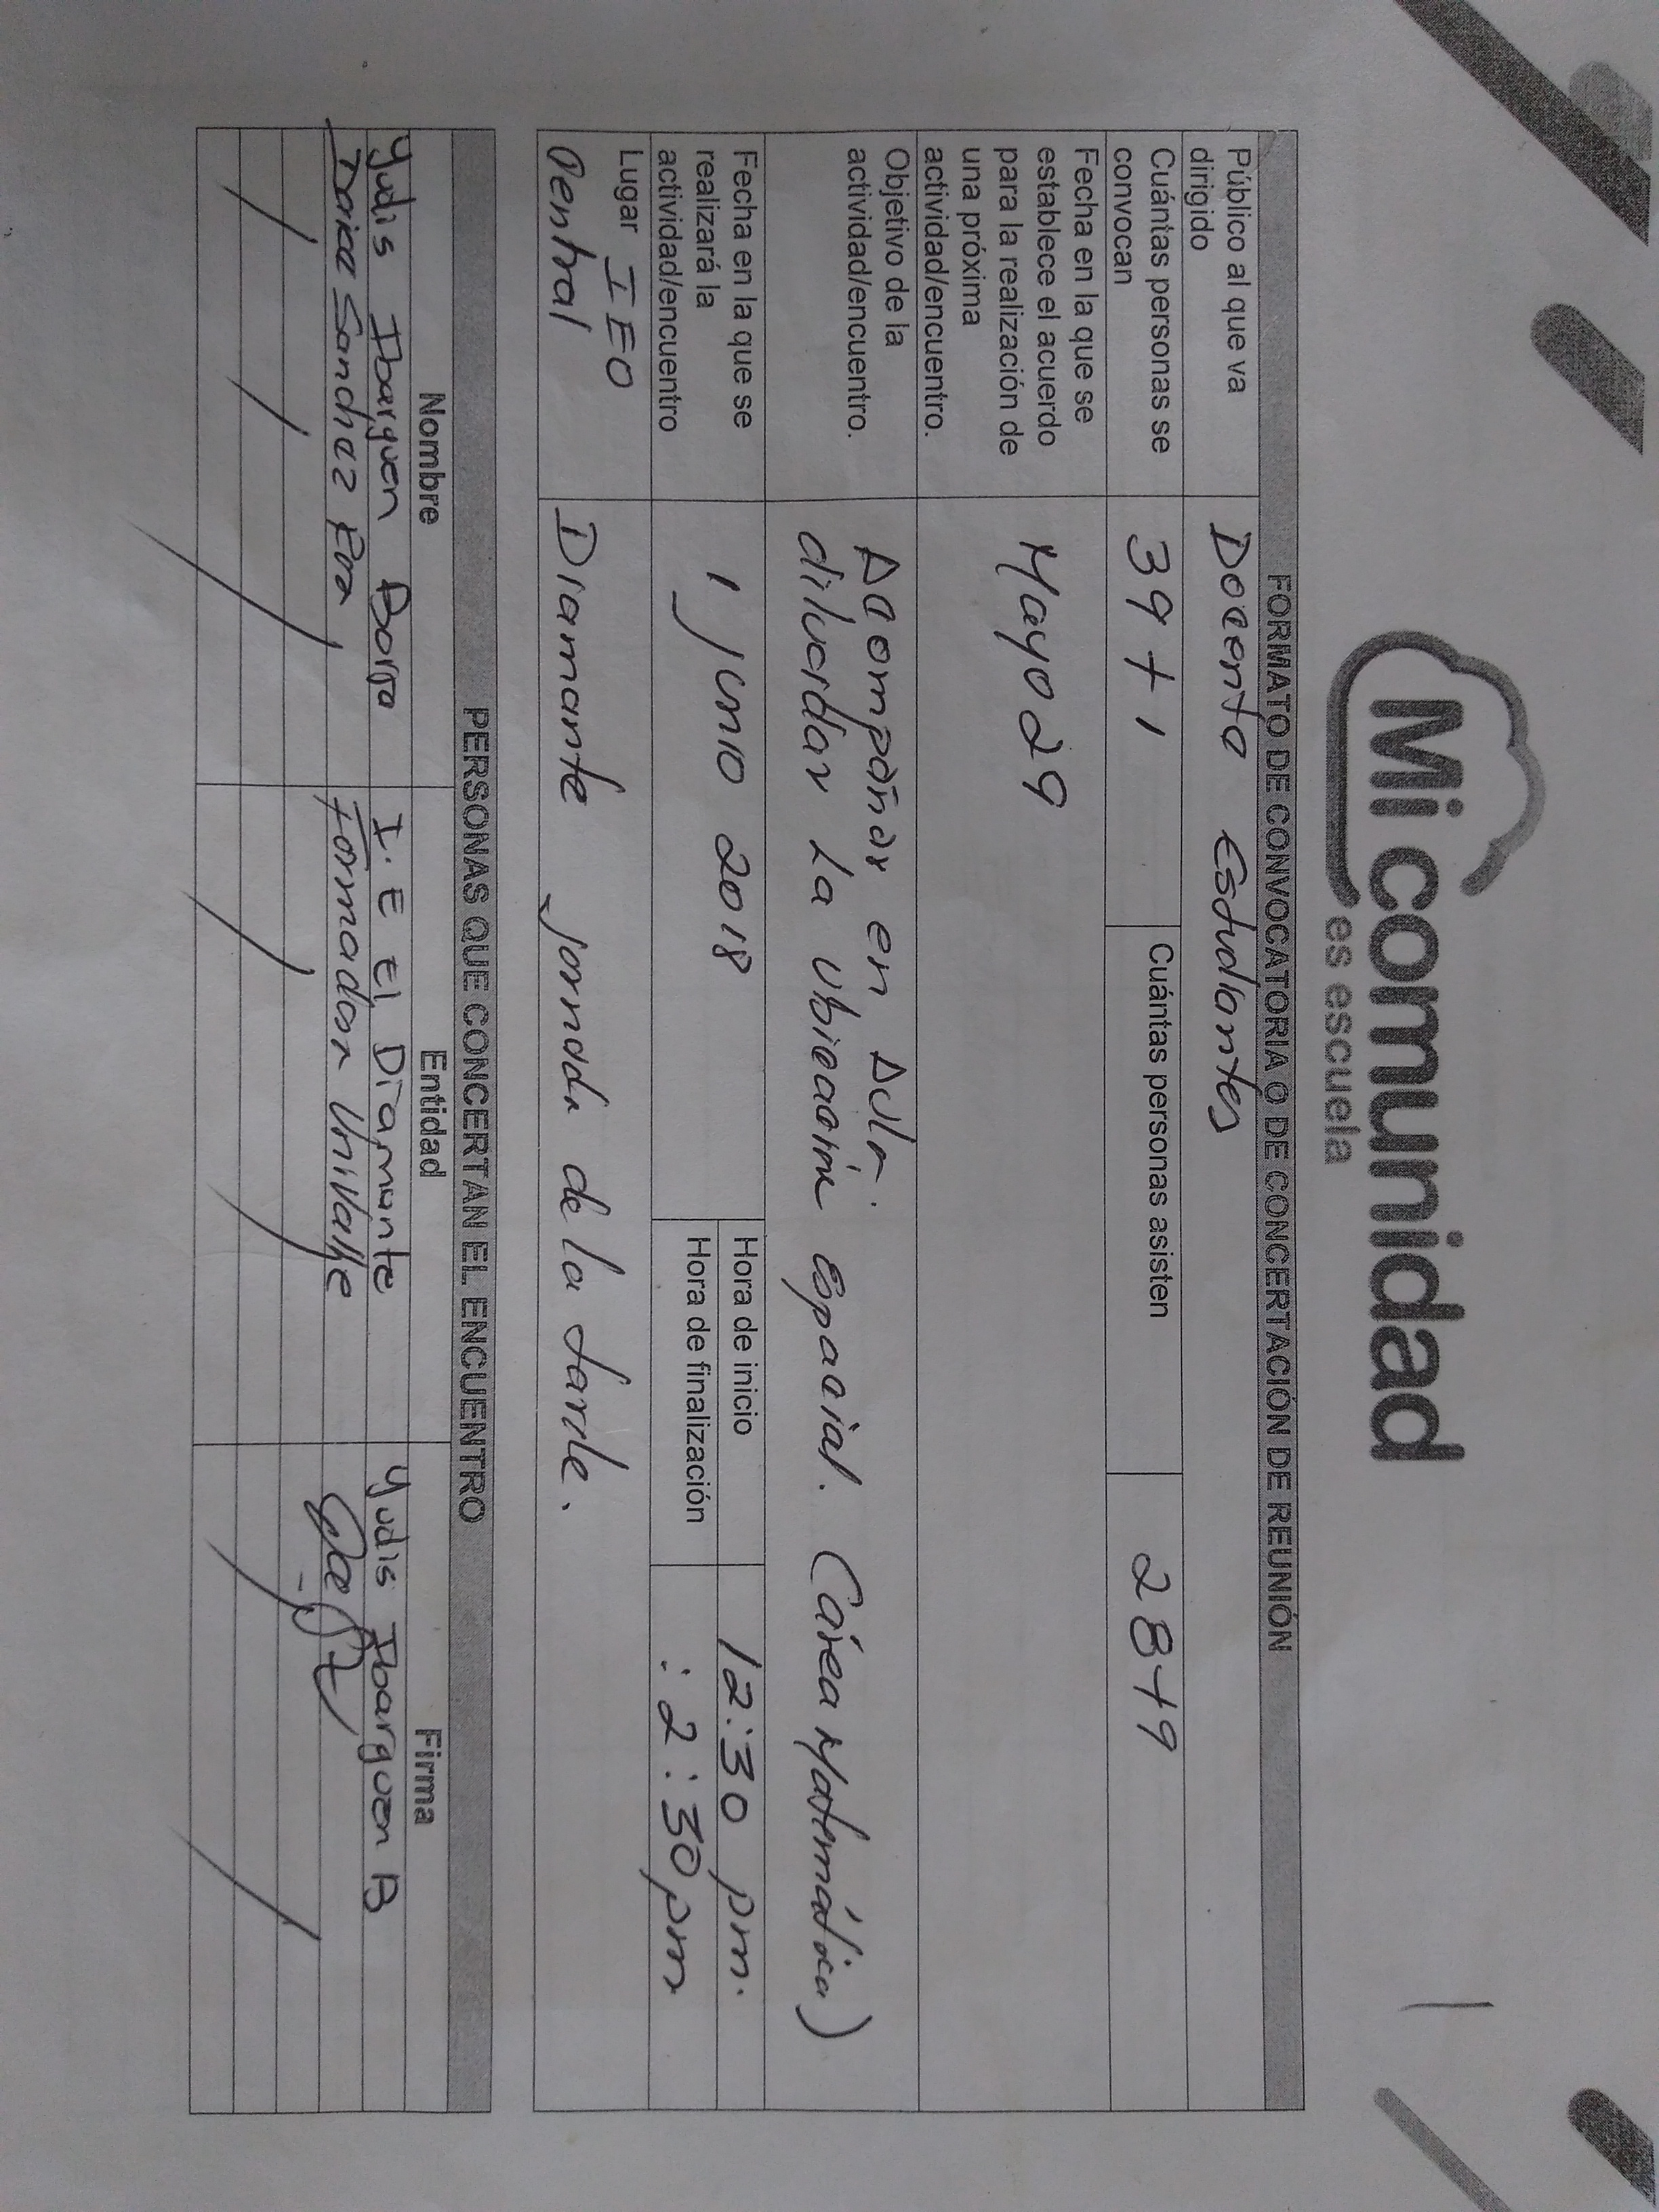 Mi comunidad
es escuela
FORMATO DE CONVOCATORIA O DE CONCERTACIÓN DE REUNIÓN
Público al que va
dirigido
Docente Estudiantes
Cuántas personas se
convocan
39 + 1
Cuántas personas asisten
28+9
Fecha en la que se
establece el acuerdo
para la realización de
una próxima
actividad/encuentro.
Mayo 29
Objetivo de la
actividad/encuentro.
Acompañar en Aula.
dilucidar La Ubicación Espacial. (área Matemática)
Fecha en la que se
realizará la
actividad/encuentro
1 junio 2018
Hora de inicio
12:30 pm.
Hora de finalización
: 2:30 pm
Lugar IEO
Central
Diamante jornada de la tarde.
PERSONAS QUE CONCERTAN EL ENCUENTRO
Nombre Entidad Firma
Yudis Ibarguen I.E El Diamante Yudis Ibarguen B
Sanchez Formadora UniValle